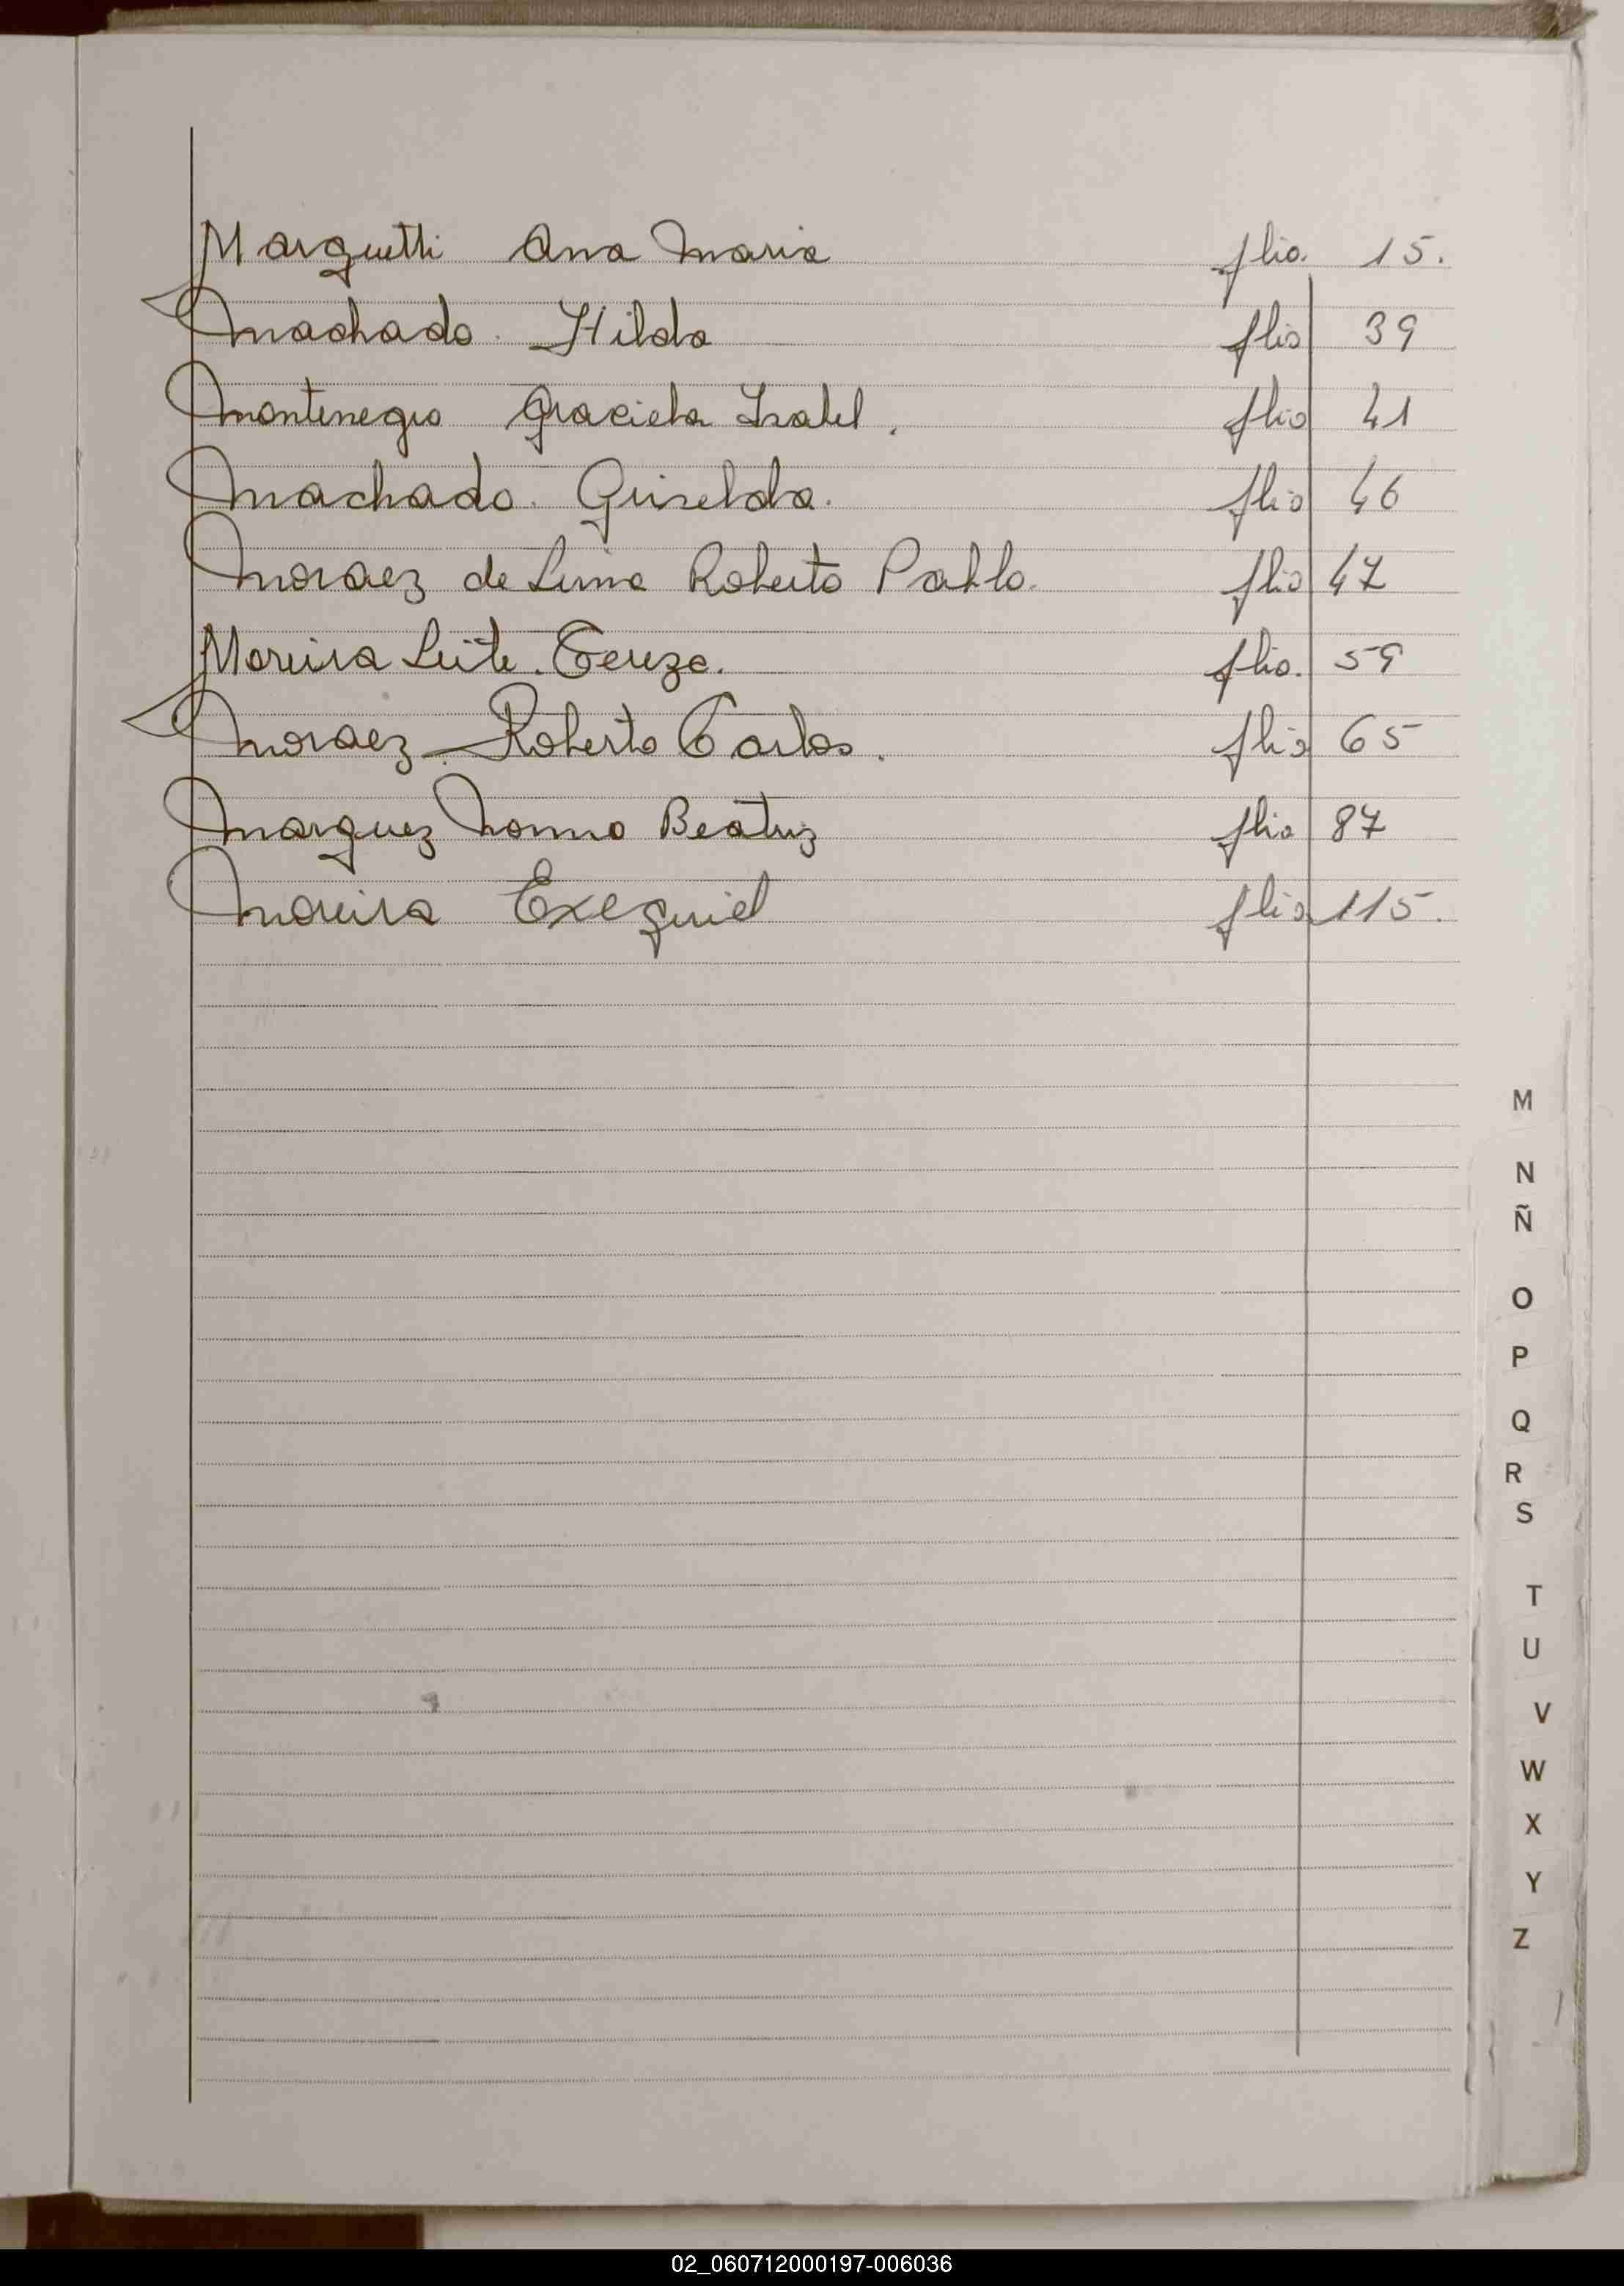 Marguetti Ana Maria flio. 15.
Machado. Hilda flio 39
Montenegro Graciela Isabel. flio 41
Machado. Griselda. flio 46
Moraez de Lima Roberto Pablo. flio 47
Moreira Leite. Tereza. flio. 59
Moraez. Roberto Carlos. flio 65
Marquez Norma Beatriz flio 87
Moreira Exequiel flio 115.
M
N
Ñ
O
P
Q
R
S
T
U
V
W
X
Y
Z
02_060712000197-006036